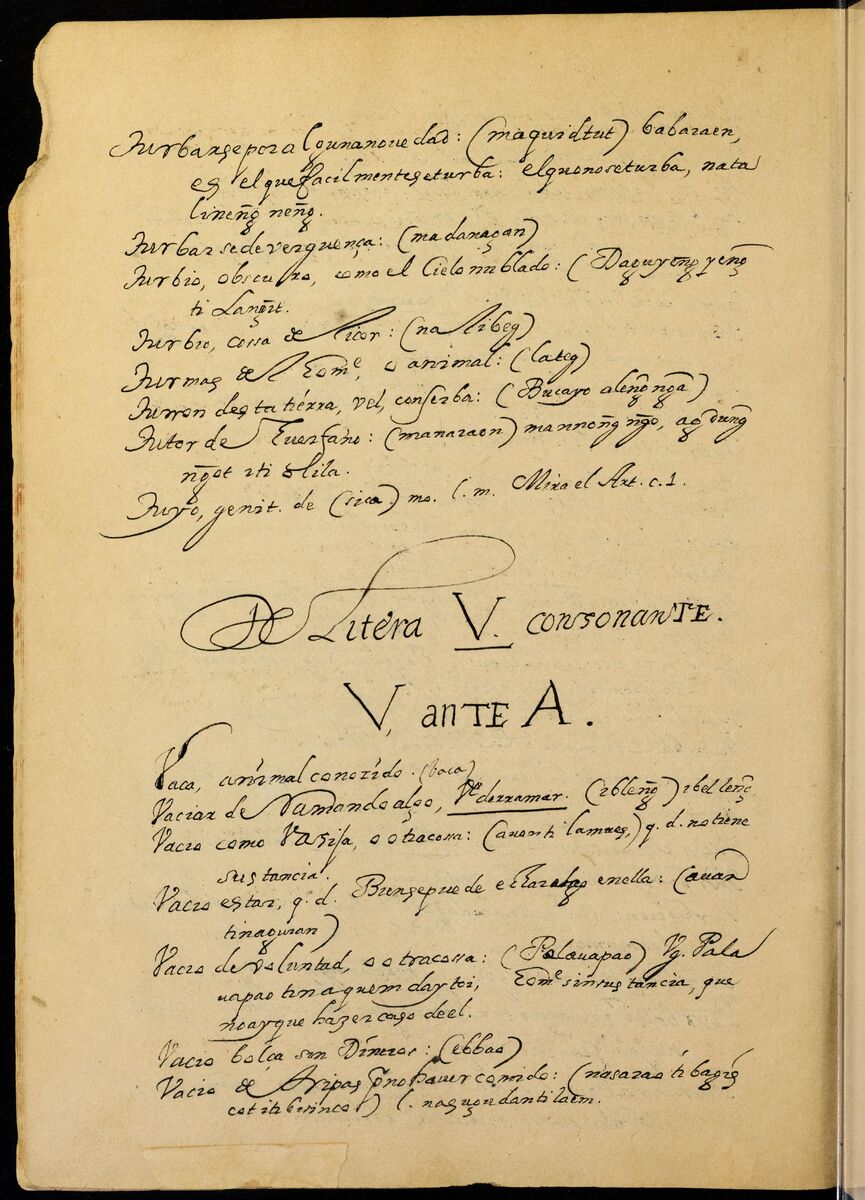 Turbarse por alguna novedad: (maquidtut) babaraen,
es el que facilmente se turba: el que no se turba, nata
lineng̃ neng̃.
Turbarse de verguença: (madanag̃an)
Turbio, obscuro, como el Cielo nublado: (Daguyeng̃ yeng̃
ti Lang̃it.
Turbio, cossa de licor: (na libeg)
Turmas de Homᵉ, o animal: (lateg)
Turron desta tiérra, vél, conserba: (Bucayo aleng̃ ng̃a)
Tutor de Huerfano: (manaraon) mannong̃ ng̃o, ag̃ dung̃
ng̃ot iti
Tuyo, genit. de (sica) mo. l. m. Mira el Art. c. 1.
De Litéra V. consonanTE.
V, anTE A.
Vaca, animal conozido. (baca)
Vaciar derramando algo, Vᵉ derramar. (ibleng̃) ibelleng̃
Vacio como Vasija, o otra cossa: (auan ti lamnes,) q. d. no tiene
sustancia.
Vacio estar, q. d. Bien se puede echar algo en ella: (auan
tinaguian)
Vacio de voluntad, o otra cossa: (Palauapao) Vg. Pala
uapao tinaquem daytoi, Homᵉ sin sustancia, que
no ay que hazer caso de el.
Vacio bolça son Dineros: (ebbao)
Vacio de tripas p̃ no haver comido: (nasarao ti bagis
cot iti bisinco) l.